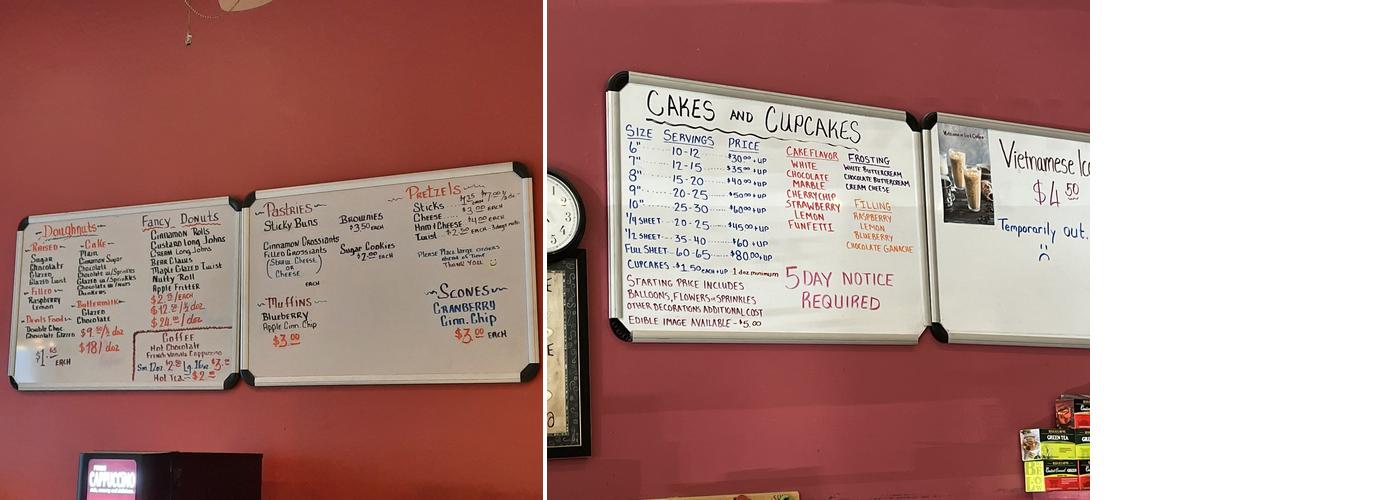 Doughnuts
Raised
Sugar
Chocolate
Glazed
Glazed Twist
Filled
Raspberry
Lemon
Devils Food
Double Choc.
Chocolate Glazed
EACH
Cake
Plain
Cinnamon Sugar
Chocolate
Chocolate w/Sprinkles
Glazed w/Sprinkles
Buttermilk
Glazed
Chocolate
$18/doz
Fancy Donuts
Cinnamon Rolls
Custard Long Johns
Cream Long Johns
Bear Claws
Maple Glazed Twist
Nutty Roll
Apple Fritter
Coffee
Hot Chocolate
French Vanilla Cappuccino
Hot Tea
Pastries
Sticky Buns
Cinnamon Croissants
Filled Croissants
(Straw. Cheese)
or
Cheese
EACH
Brownies
$3.50 EACH
Sugar Cookies
$2.00 EACH
Muffins
Blueberry
Apple Cinn. Chip
$3.00
Pretzels
Sticks
Cheese $3.00 EACH
Ham & Cheese $4.00 EACH
Twist
Please Place large orders
ahead of time
Thank You
Scones
Cranberry
Cinn. Chip
$3.00 EACH
CAPPUCCINO
CAKES AND CUPCAKES
SIZE SERVINGS PRICE
6" 10-12 $30.00 + UP
7" 12-15 $35.00 + UP
8" 15-20 $40.00 + UP
9" 20-25 $50.00 + UP
10" 25-30 $60.00 + UP
1/4 SHEET 20-25 $45.00 + UP
1/2 SHEET 35-40 $60 + UP
FULL SHEET 60-65 $80.00 + UP
CUPCAKES $1.50 EACH + UP 1 doz minimum
STARTING PRICE INCLUDES
BALLOONS, FLOWERS or SPRINKLES
OTHER DECORATIONS ADDITIONAL COST
EDIBLE IMAGE AVAILABLE - $5.00
CAKE FLAVOR
WHITE
CHOCOLATE
MARBLE
CHERRYCHIP
STRAWBERRY
LEMON
FUNFETTI
FROSTING
WHITE BUTTERCREAM
CHOCOLATE BUTTERCREAM
CREAM CHEESE
FILLING
RASPBERRY
LEMON
BLUEBERRY
CHOCOLATE GANACHE
5 DAY NOTICE
REQUIRED
Vietnamese Ice
$4.50
Temporarily out.
GREEN TEA